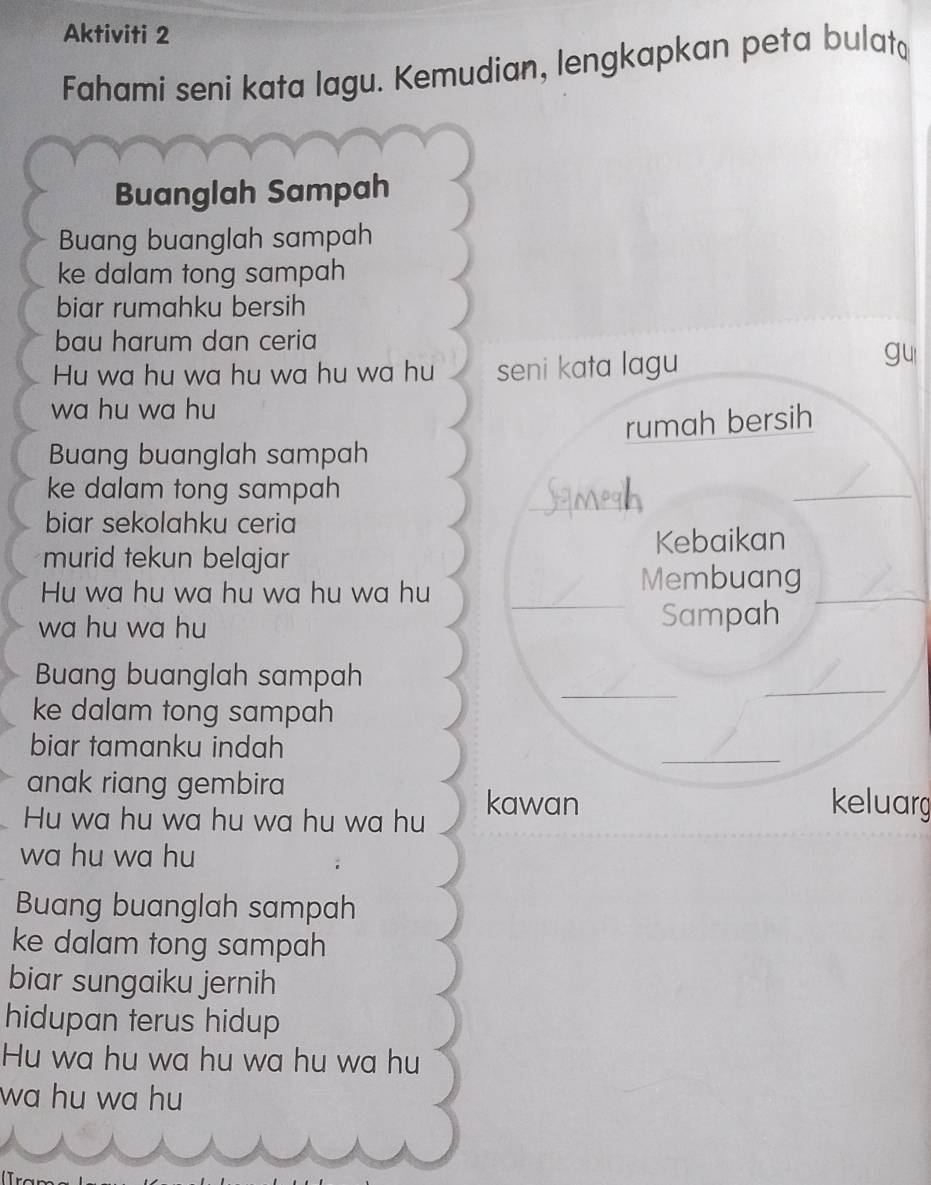 Aktiviti 2
Fahami seni kata lagu. Kemudian, lengkapkan peta bulata
Buanglah Sampah
Buang buanglah sampah
ke dalam tong sampah
biar rumahku bersih
bau harum dan ceria
Hu wa hu wa hu wa hu wa hu
wa hu wa hu
Buang buanglah sampah
ke dalam tong sampah
biar sekolahku ceria
murid tekun belajar
Hu wa hu wa hu wa hu wa hu
wa hu wa hu
Buang buanglah sampah
ke dalam tong sampah
biar tamanku indah
anak riang gembira
Hu wa hu wa hu wa hu wa hu
wa hu wa hu
Buang buanglah sampah
ke dalam tong sampah
biar sungaiku jernih
hidupan terus hidup
Hu wa hu wa hu wa hu wa hu
wa hu wa hu
seni kata lagu
gu
rumah bersih
Kebaikan
Membuang
Sampah
kawan
keluarg